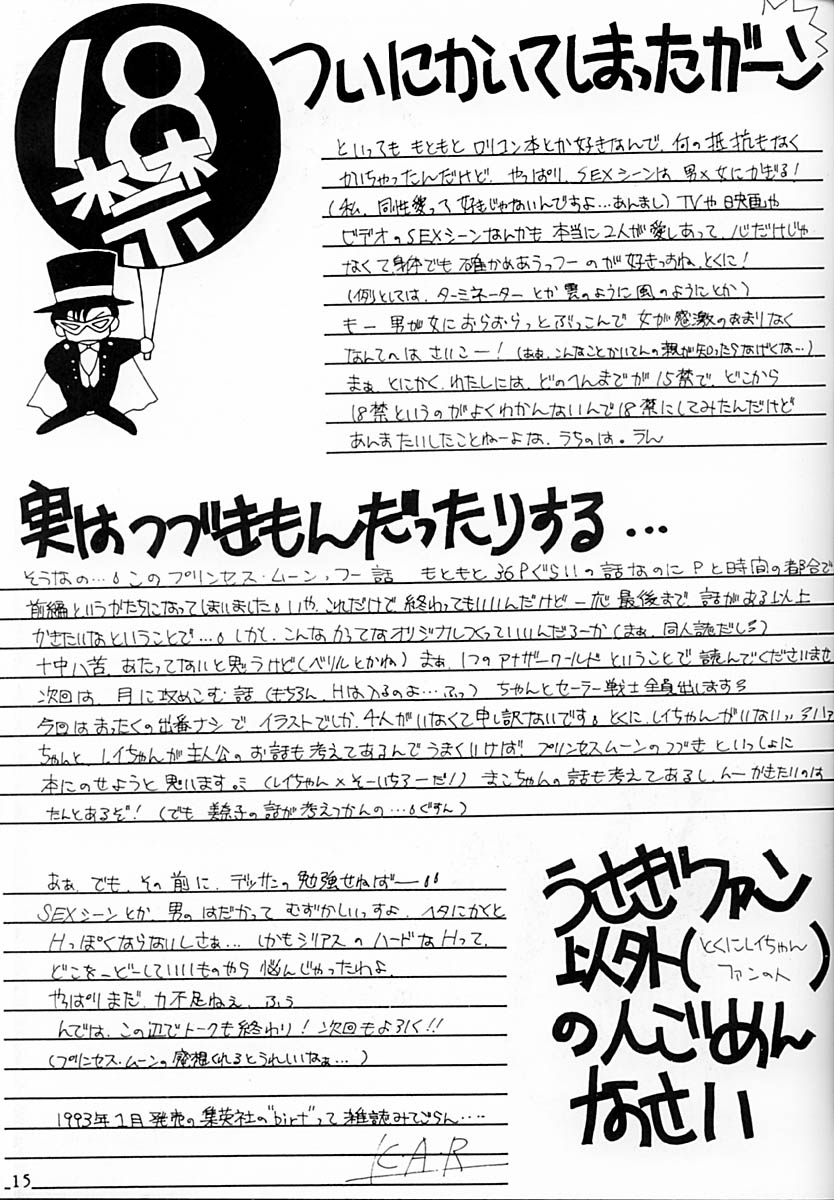 18
禁
ついにかいてしまったガーン
といっても もともと ロリコン本とか好きなんで、何の抵抗もなく
かいちゃったんだけど、やっぱり、SEXシーンは 男×女にかぎる!
(私、同性愛って 好きじゃないんですよ…あんまし) TVや映画や
ビデオのSEXシーンなんかも 本当に2人が愛しあって、心だけじゃ
なくて身体でも 確かめあうっフーのが好きっすね、とくに!
(例としては、ターミネーター とか 雲のように風のようにとか)
もー 男が女におらおらっとぶっこんで 女が感激のあまりなく
なんてのは さいこー! (あぁ、こんなことかいてんの親が知ったらなげくな…)
まぁ、とにかく、わたしには、どのへんまでが 15禁で、どこから
18禁というのがよくわかんないんで18禁にしてみたんだけど
あんまたいしたことねーよな、うちのは。うん
実はつづきもんだったりする…
そうなの…。このプリンセス・ムーンっフー話 もともと36Pぐらいの話なのにPと時間の都合で
前編というかたちになってしまいました。いや、これだけで終わってもいいんだけど一応最後まで話がある以上
かきたいなということで…。しかし、こんなかってなオリジナルつくっていいんだろーか(まぁ、同人誌だしろ)
十中八苦、あたってないと思うけど(ベリルとかね) まぁ、1つのアナザーワールドということで読んでくださいませ
次回は、月に攻めこむ話(もちろん、Hは入るのよ…ふっ) ちゃんとセーラー戦士全員出しますろ
今回はまったくの出番ナシで、イラストでしか、4人がいなくて申し訳ないです。とくに、レイちゃんがいない
ちゃんと、レイちゃんが主人公のお話も考えてあるんでうまくいけば、プリンセスムーンのつづきといっしょに
本にのせようと思います。(レイちゃん×そーいちろーだ!) まこちゃんの話も考えてあるし、んーかきたいのは
たんとあるぞ! (でも 美奈子の話が考えつかんの…。ぐすん)
あぁ、でも、その前に、デッサンの勉強せねばー
SEXシーンとか、男のはだかって むずかしいっすよ、ヘタにかくと
Hっぽくならないしさぁ… しかもシリアスのハードなHって、
どこをーどーしていいものやら 悩んじゃったわよ、
やっぱりまだ、力不足ねぇ、ふぅ
んでは、この辺でトークも終わり! 次回もよろしく!!
(プリンセス・ムーンの感想くれるとうれしいなぁ…)
1993年1月発売の集英社の"birt"って雑誌みてごらん…
K・A・R
うさぎファン
以外(とくにレイちゃん
ファンの人)
の人ごめん
なさい
15